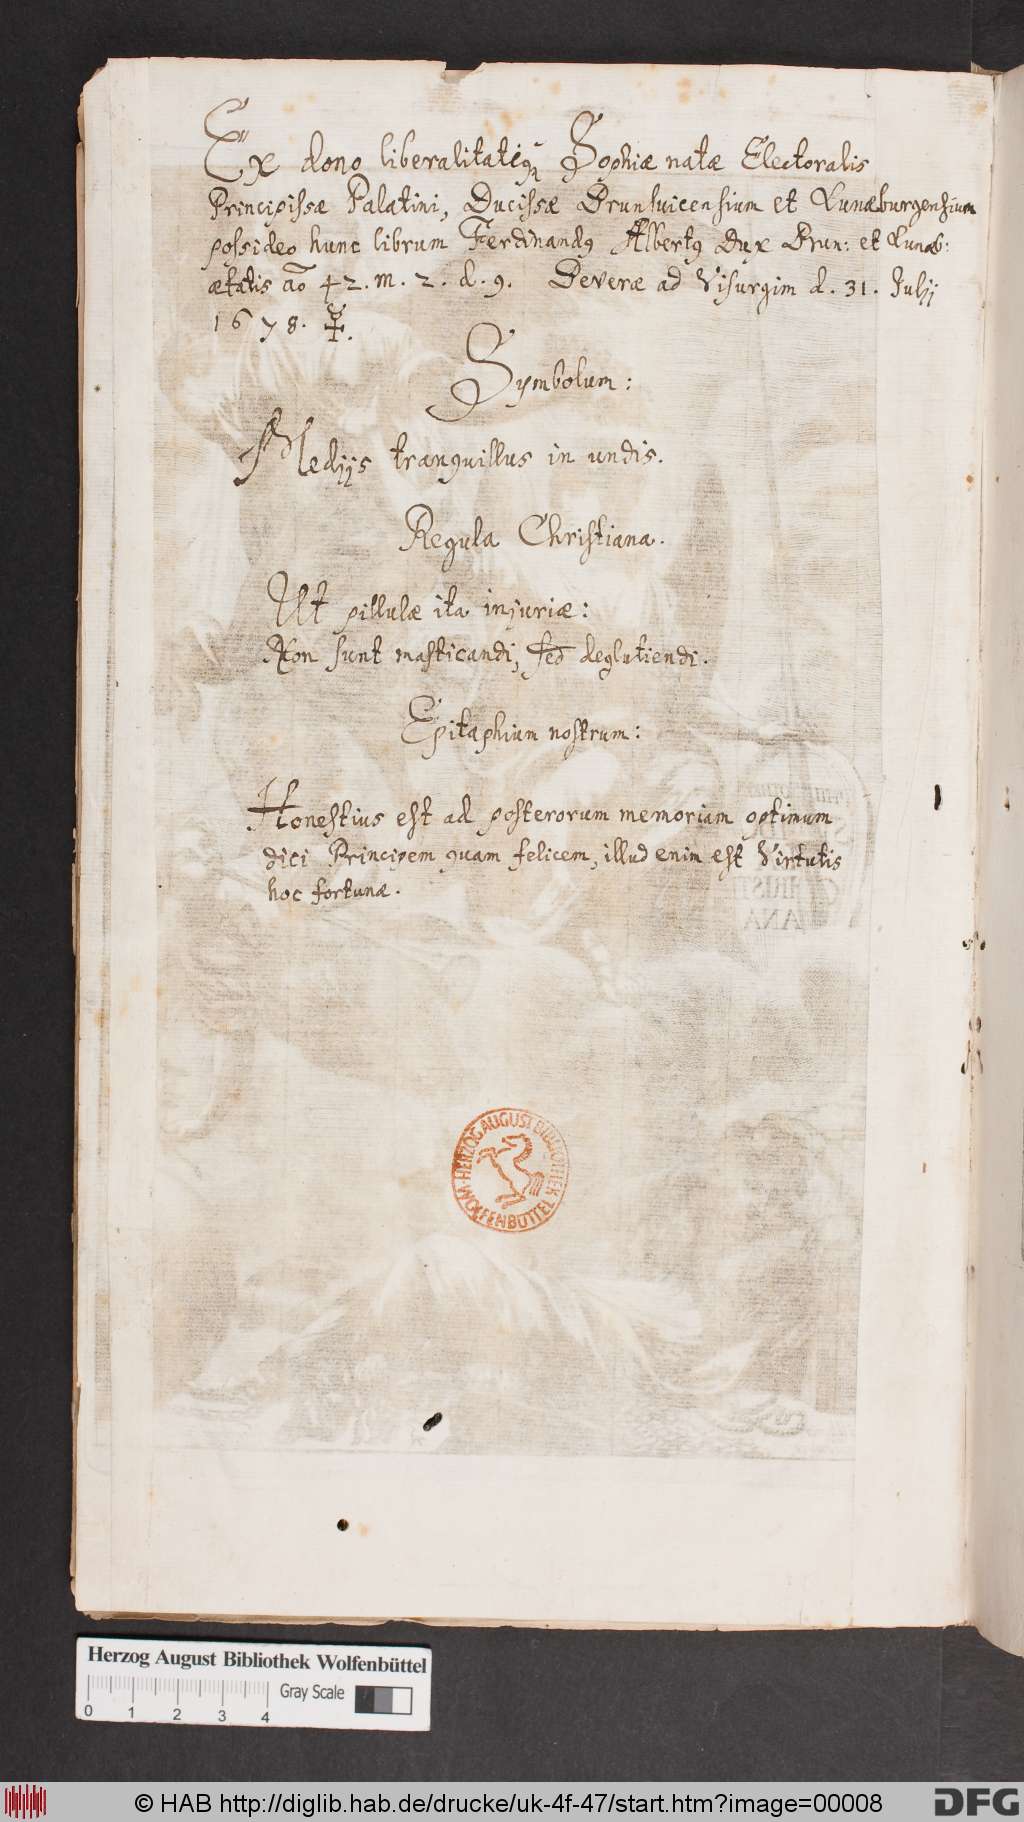 Ex dono liberalitatisq; Sophiæ natæ Electoralis
Principissæ Palatini, Ducissæ Brunsuicensium et Lunæburgensium
possideo hunc librum Ferdinandꝰ Albertꝰ Dux Brun: et Lunæb:
ætatis aō 42. m. 2. d. 9. Beveræ ad Visurgim d. 31. Julij
1678.
Symbolum:
Medijs tranquillus in undis.
Regula Christiana.
Ut pillulæ ita injuriæ:
Non sunt masticandi, sed deglutiendi.
Epitaphium nostrum:
Honestius est ad posterorum memoriam optimum
dici Principem quam felicem, illud enim est Virtutis
hoc fortunæ.
HERZOG AUGUST BIBLIOTHEK
WOLFENBÜTTEL
Herzog August Bibliothek Wolfenbüttel
Gray Scale
0 1 2 3 4
© HAB http://diglib.hab.de/drucke/uk-4f-47/start.htm?image=00008
DFG